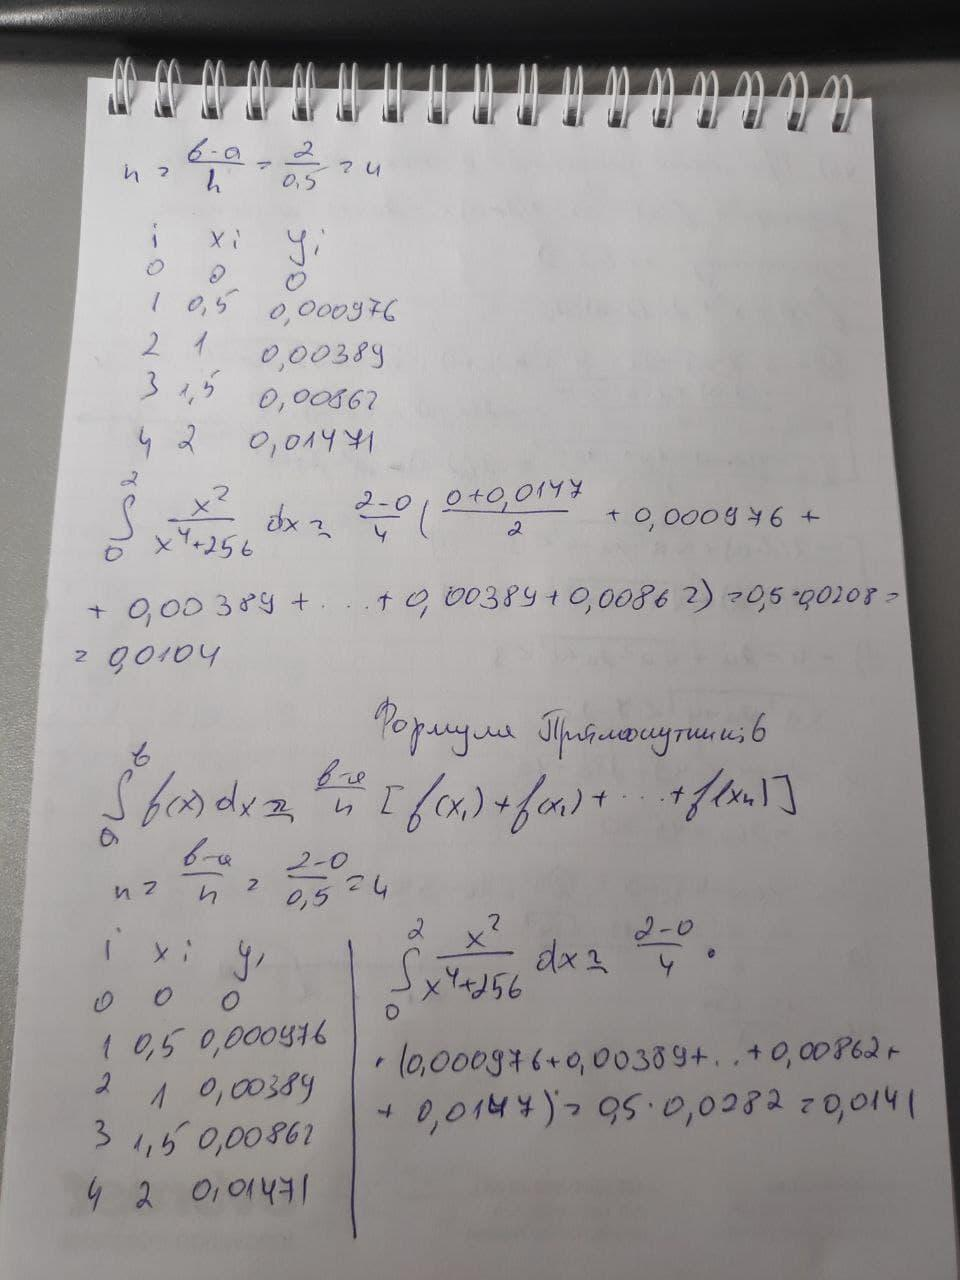 n = (в-а)/h = 2/0,5 = 4
i xi yi
0 0 0
1 0,5 0,000976
2 1 0,00389
3 1,5 0,00862
4 2 0,01471
∫₀² x²/(x⁴+256) dx ≈ (2-0)/4 ((0+0,0147)/2 + 0,000976 +
+ 0,00389 + ... + 0,00389 + 0,00862) = 0,5·0,0208 =
= 0,0104
Формула Прямокутників
∫ₐᵇ f(x) dx ≈ (в-а)/n [f(x₁) + f(x₂) + ... + f(xn)]
n = (в-а)/h = (2-0)/0,5 = 4
i xi yi
0 0 0
1 0,5 0,000976
2 1 0,00389
3 1,5 0,00862
4 2 0,01471
∫₀² x²/(x⁴+256) dx ≈ (2-0)/4 ·
· (0,000976 + 0,00389 + ... + 0,00862 +
+ 0,0147) = 0,5·0,0282 = 0,0141